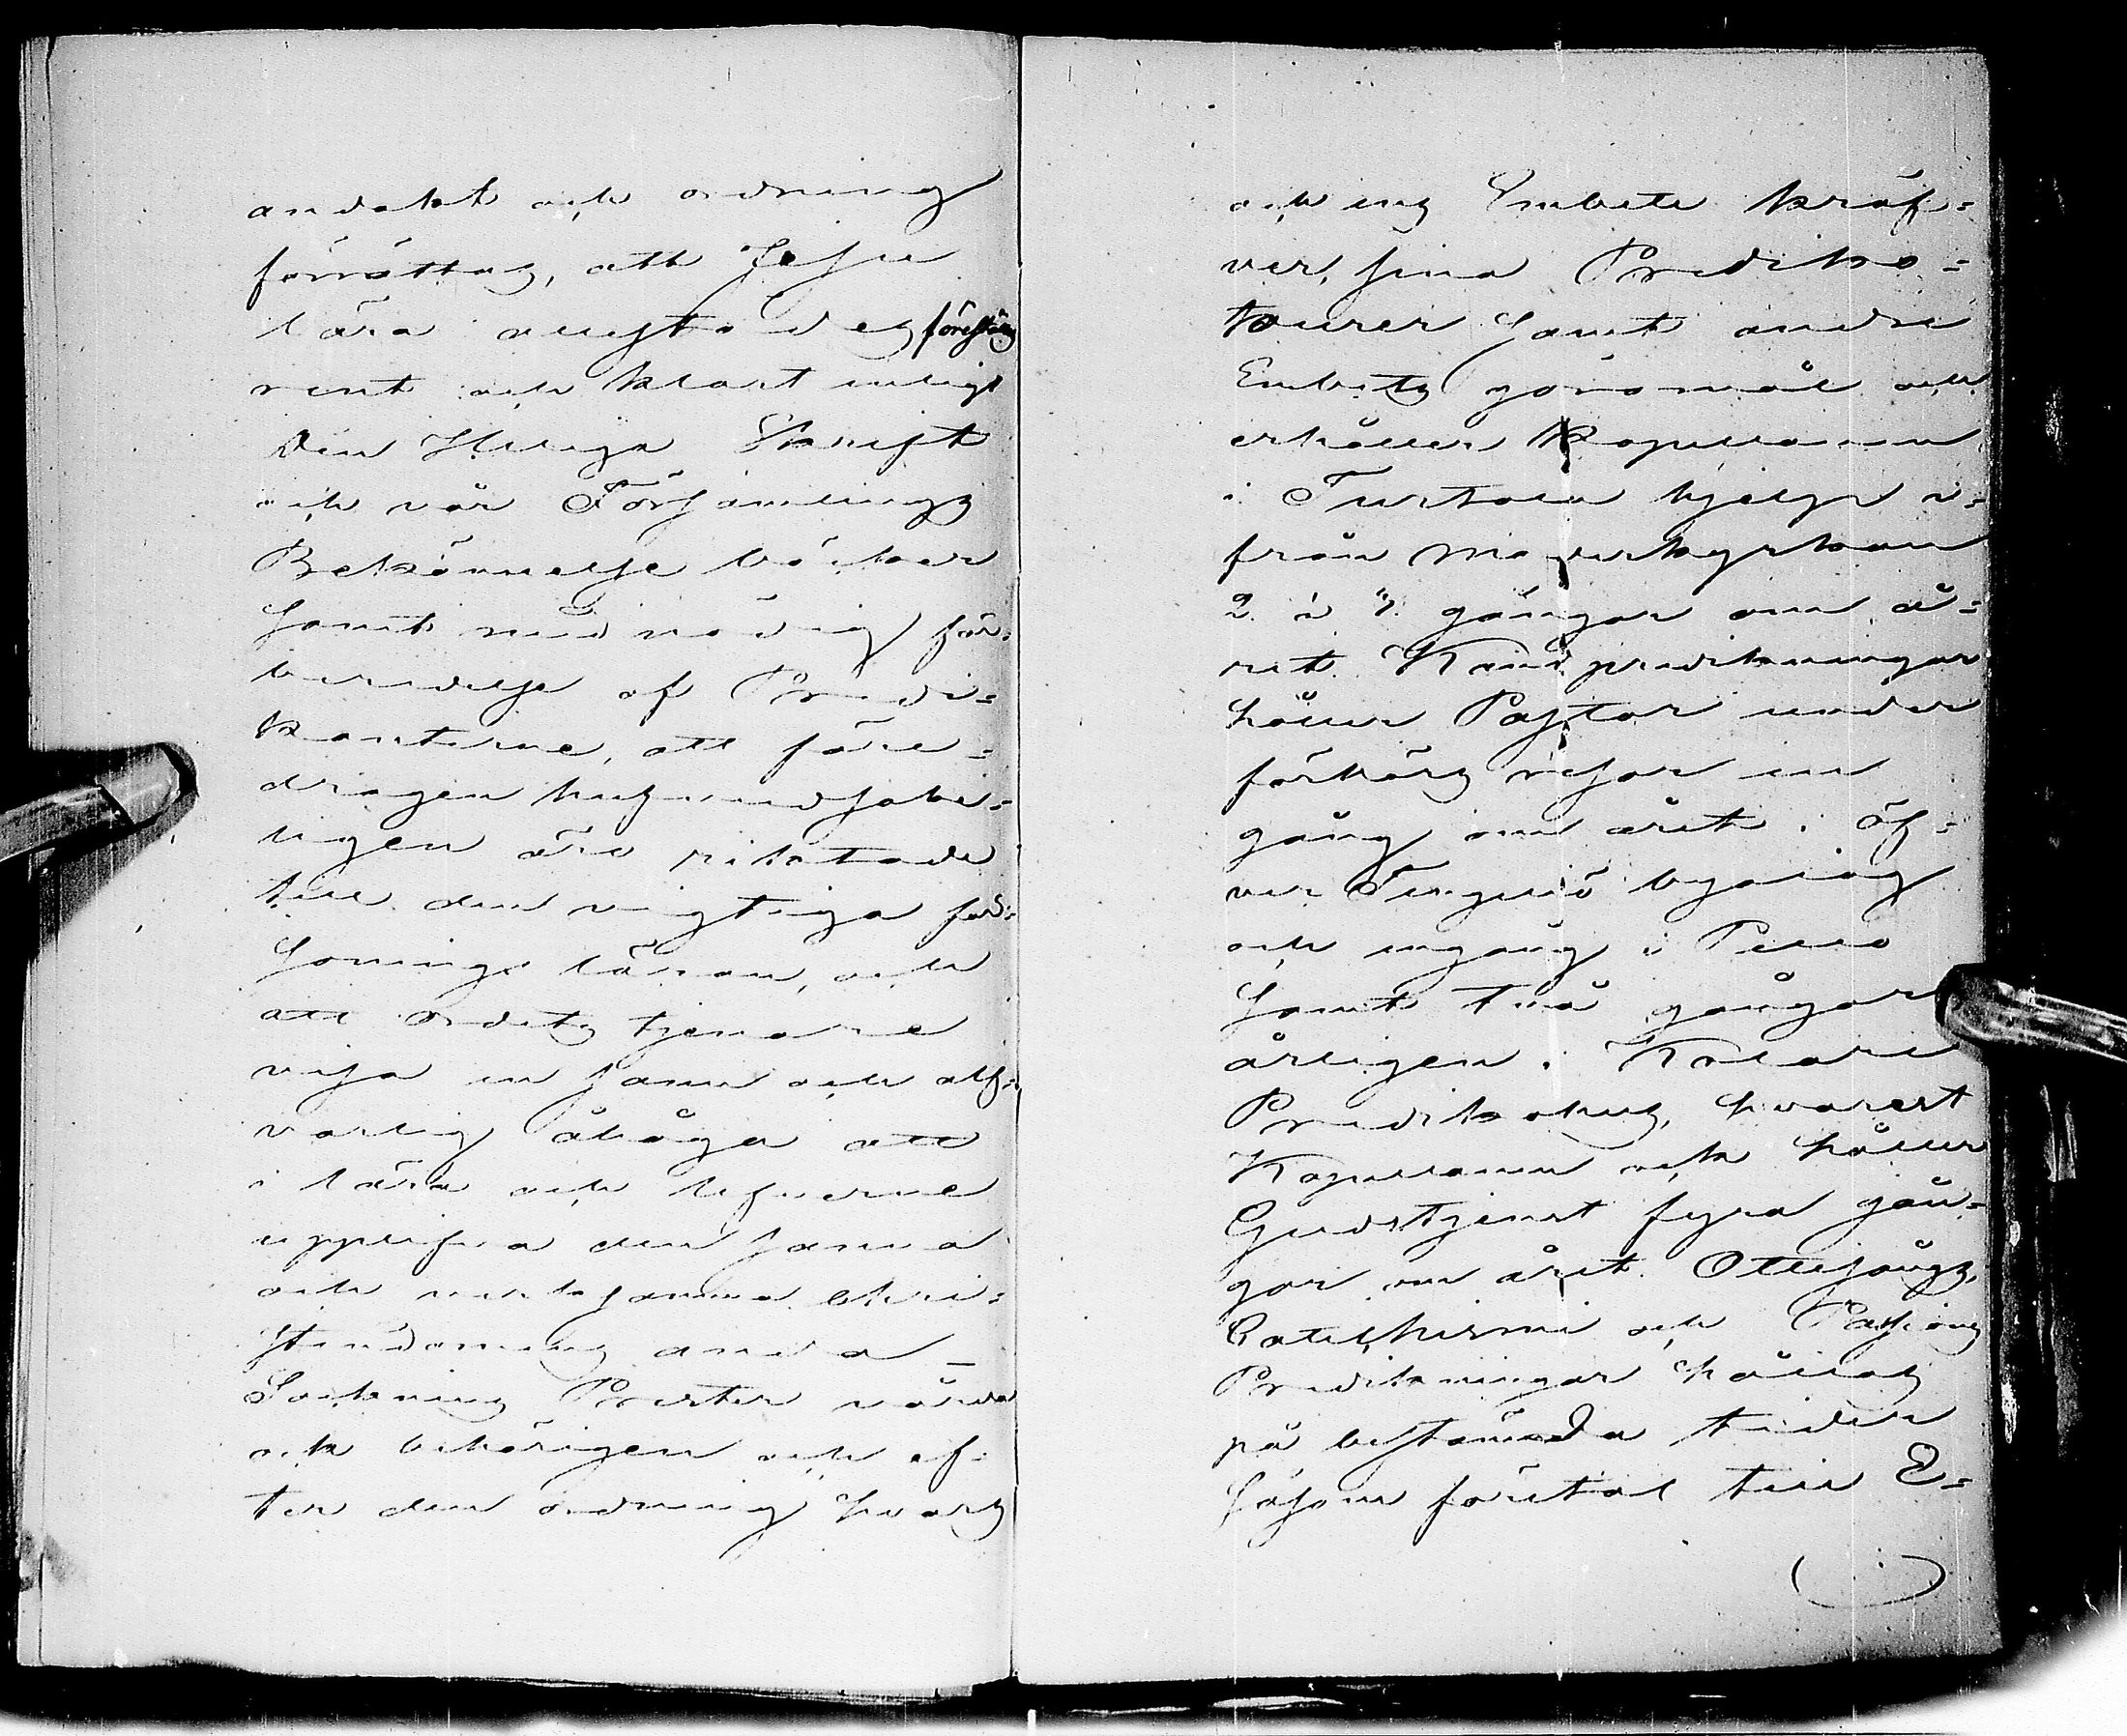 andakt och ordning
förrättas, att Jesu
lära ausst des förestäng
rent och klart enligt
den Heliga Skrift
och vår Församlings
Bekännelse böcker
samt med nödig för-
beredelse af Predi=
kanterne, att före=
dragen hufvudsake=
ligen äro riktade
till den vigtiga för=
soningsläran, och
att Ordets tjenare
visa en sann och all=
varlig åhåga att
i lära och lefverne
upplifva den sanna
och verksamma Chri=
stendomens anda _
Socknens Prester vårda
ock behörigen och ef=
ter den ordning hvars
och ens Embete kräf=
ver, sina Prediko=
tourer samt andre
Embets göromål och
erhåller Kapellanen
i Turtola hjelp i=
från moderkyrkan
2 à 3 gångar om å=
ret. Predikningar
håller Pastor under
förhörs resor en
gång om året i Öf=
ver Tengeliö bylag
och engång i Pello
samt två gångar
årligen i Kolare
Predikohus, hvarest
Kapellanen ock håller
Gudstjenst fyra gån=
gor om året. Ottesångs,
Catechismi och Passions
Predikningar hållas
på bestämda tider
såsom föutol till E=